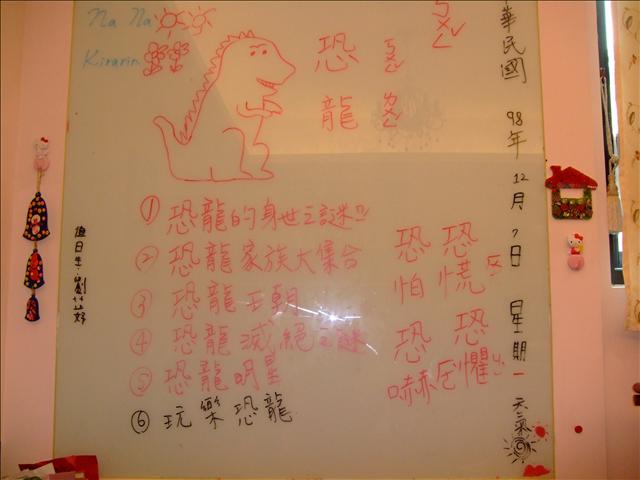 Na Na
Kirarin
恐龍
① 恐龍的身世之謎
② 恐龍家族大集合
③ 恐龍王朝
④ 恐龍滅絕之謎
⑤ 恐龍明星
⑥ 玩樂恐龍
恐慌
恐怕
恐懼
恐嚇
華民國 98年 12月 7日 星期一 天氣
值日生: